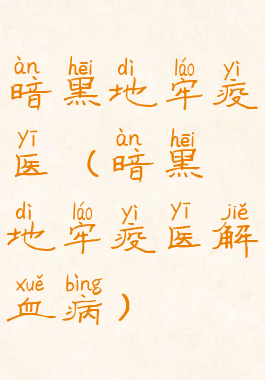 àn hēi dì láo yì
暗黑地牢疫
yī àn hēi
医（暗黑
dì láo yì yī jiě
地牢疫医解
xuě bìng
血病）